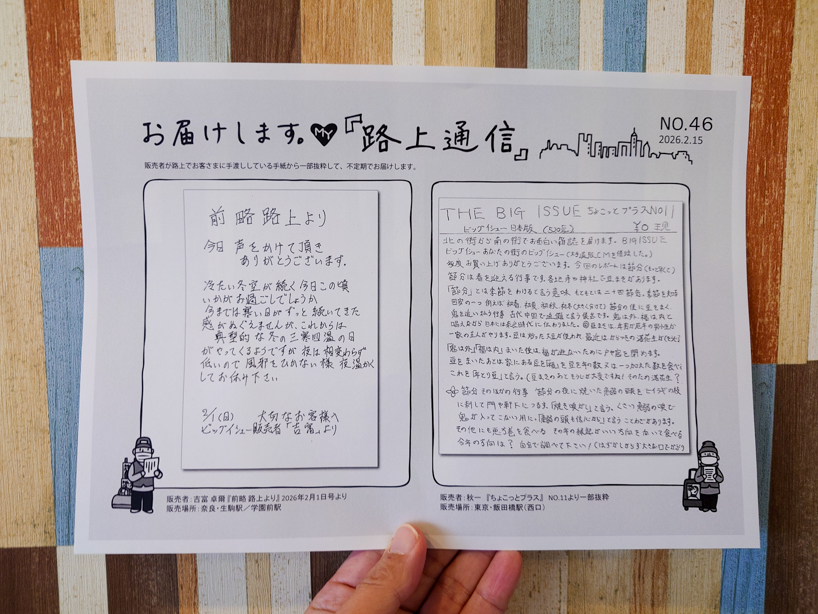 お届けします。MY『路上通信』
NO.46
2026.2.15
販売者が路上でお客さまに手渡ししている手紙から一部抜粋して、不定期でお届けします。
前略路上より
今日 声をかけて頂き
ありがとうございます。
冷たい冬空が続く今日この頃
いかがお過ごしでしょうか
今までは寒い日がずっと続いてきた
感がぬぐえませんが、これからは
典型的な冬の三寒四温の日
がやってくるようですが 夜は相変わらず
低いので 風邪をひかない様 夜温かく
してお休み下さい
2/1(日) 大切なお客様へ
ビッグイシュー販売者「吉富」より
販売者：吉富 卓爾『前略 路上より』2026年2月1日号より
販売場所：奈良・生駒駅／学園前駅
THE BIG ISSUE ちょこっとプラスNO11
ビッグイシュー日本版
北の街から南の街で お面白い雑誌を届けます。BIG ISSUE
ビッグイシューあなたの街のビッグイシュー
毎度お買い上げありがとうございます。今回の
節分は春を迎える行事で、各地寺や神社で豆まきがあります。
「節分」とは季節をわけると言う意味
節分の夜に豆をまく、
鬼を追い払う行事
唱えながら 日本には
一家の主人がやります。豆は煎った大豆が使われ、最近は
「鬼は外」「福は内」まいた後は福が逃げないために戸や窓を閉めます。
豆をまいたあとは家にある豆を
これを年とり豆」と言う。
節分 そのほかの行事 節分の夜に焼いた鰯の頭をヒイラギの枝
に刺して門や軒下につるす、「
鬼が入ってこない用に。「鰯の頭も信心から」と言うことわざがあります。
その他にも恵方巻を食べる その年の縁起がいい方向を向いて食べる
今年の方向は？ 自分で調べて下さい！
販売者：秋一 『ちょこっとプラス』 NO.11より一部抜粋
販売場所：東京・飯田橋駅（西口）